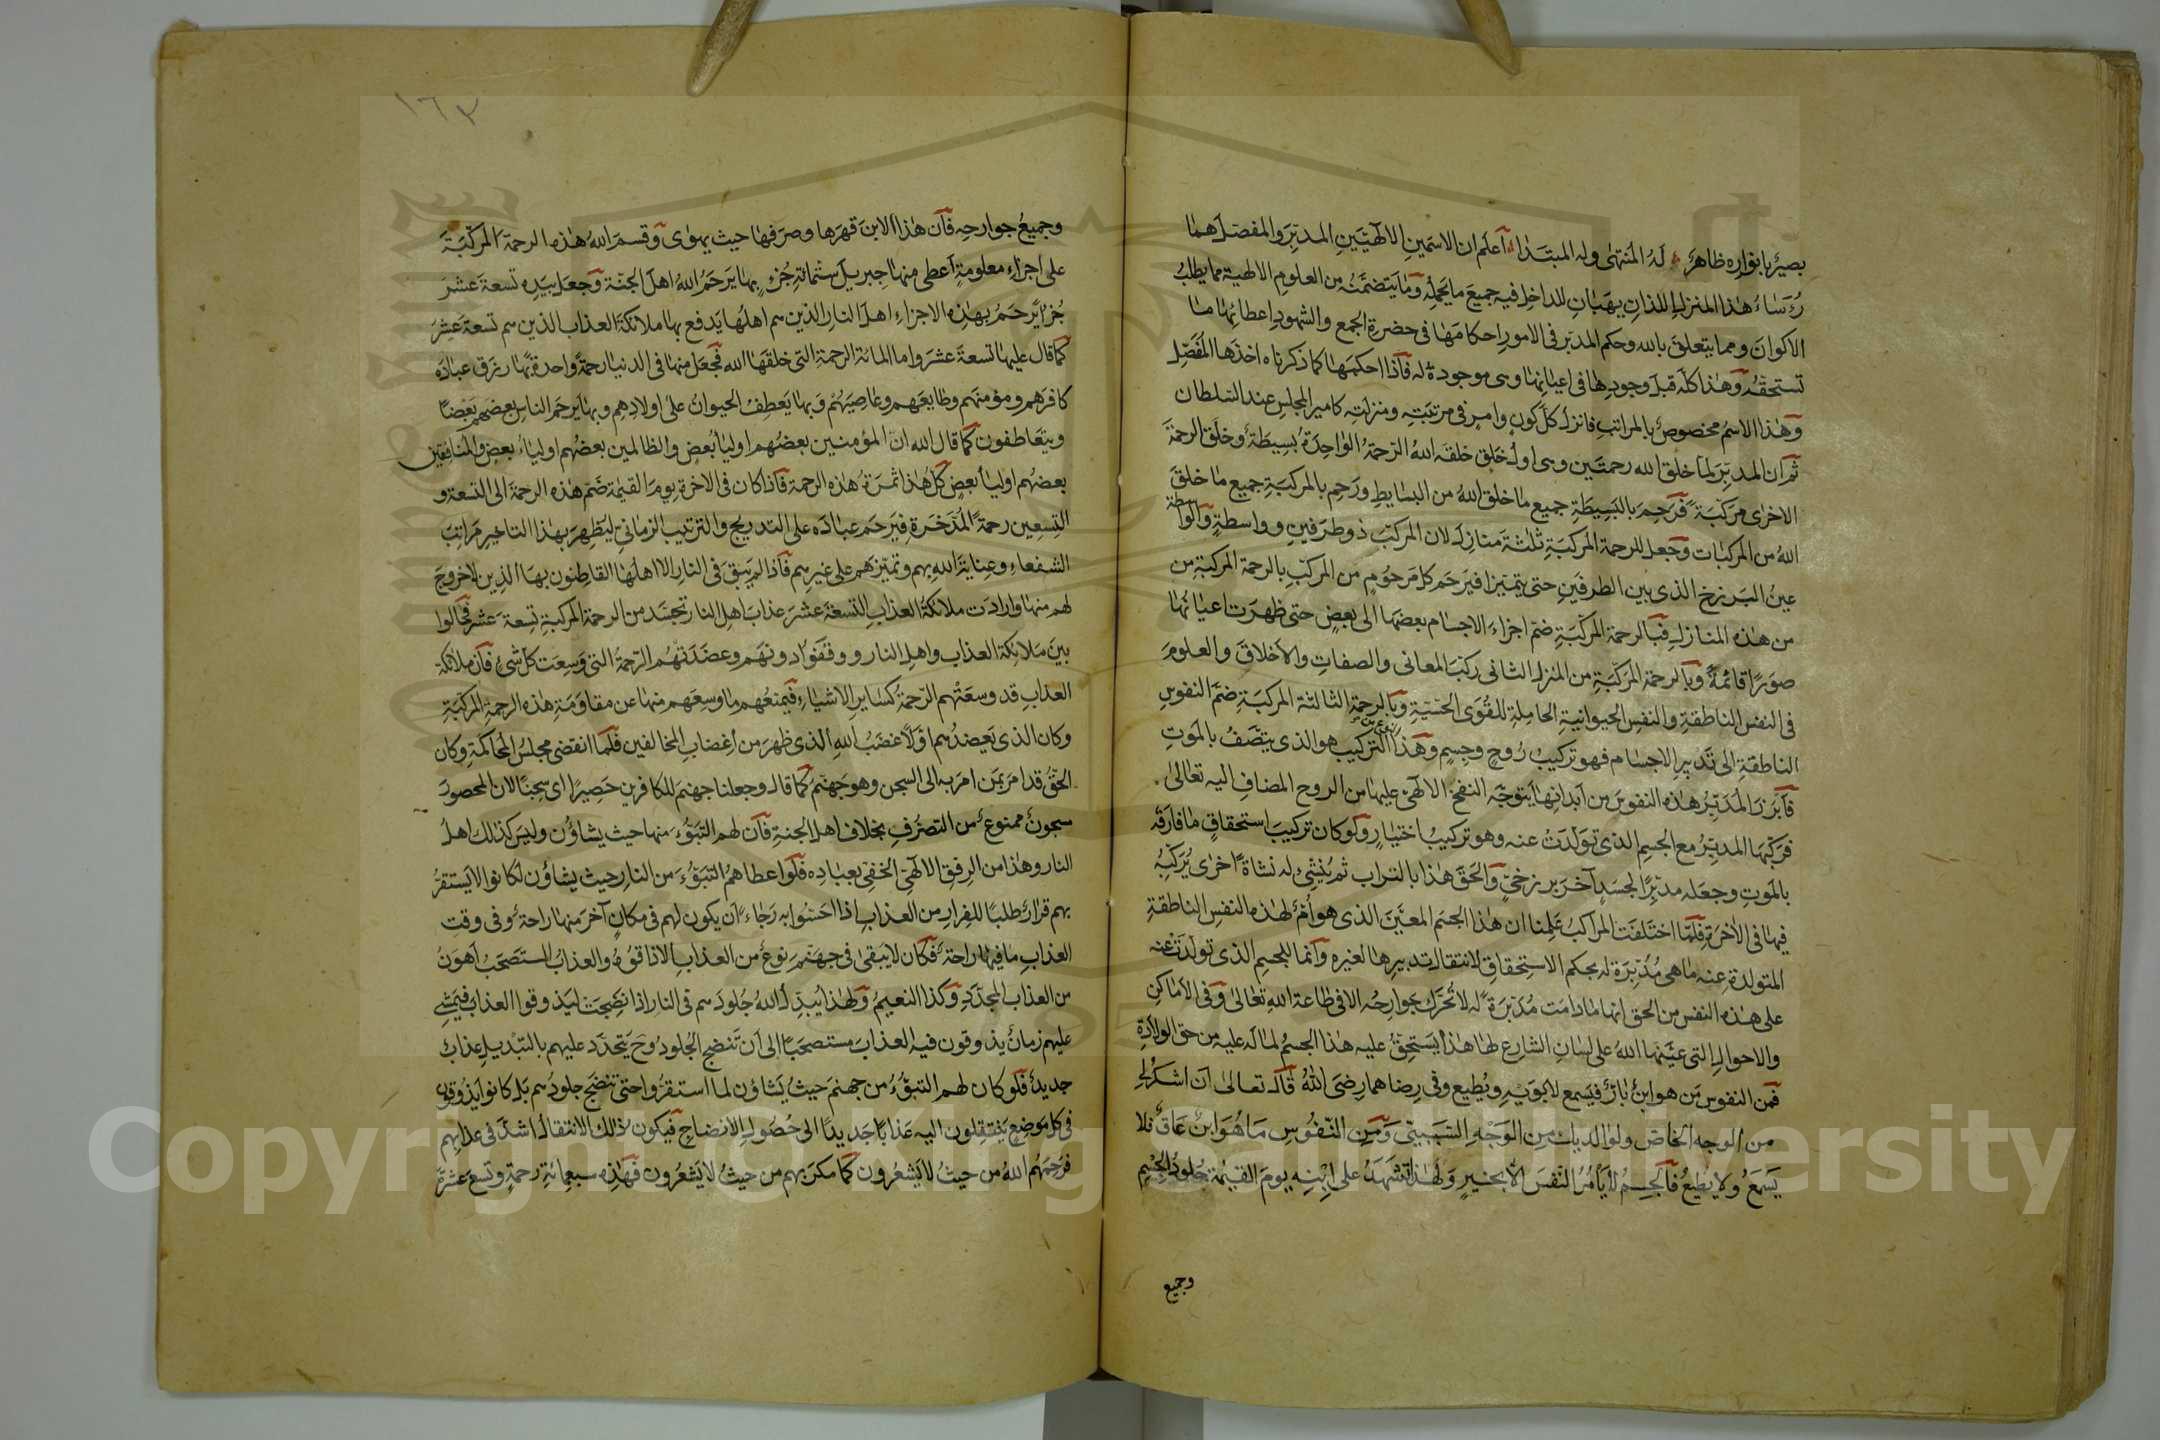 بصير بانواره ظاهر له المنتهى وله المبتدا اعلم ان الاسمين الالهيين المدبر والمفصل هما
رؤساء هذا المنزل اللذان يهبان للداخل فيه جميع ما يحمله وما يتضمنه من العلوم الالهية مما يطلب
الاكوان ومما يتعلق بالله وحكم المدبر فى الامور احكامها فى حضرة الجمع والشهود اعطائها ما
تستحقه وهذا كله قبل وجودها فى اعيانها وهى موجودة له فاذا احكمها كما ذكرناه اخذها المفصل
وهذا الاسم مخصوص بالمراتب فانزل كل كون وامر فى مرتبته ومنزلته كامير المجلس عند السلطان
ثم ان المدبر لما خلق الله رحمتين وهى اول خلق خلقه الله الرحمة الواحدة بسيطة وخلق الرحمة
الاخرى مركبة فرحم بالبسيطة جميع ما خلق الله من البسايط ورحم بالمركبة جميع ما خلق
الله من المركبات وجعل للرحمة المركبة ثلثة منازل لان المركب ذو طرفين وواسطة والواسطة
عين البرزخ الذى بين الطرفين حتى يتميزا فيرحم كل مرحوم من المركب بالرحمة المركبة من
من هذه المنازل فبالرحمة المركبة ضم اجزاء الاجسام بعضها الى بعض حتى ظهرت اعيانها
صورا قائمة وبالرحمة المركبة من المنزل الثانى ركب المعانى والصفات والاخلاق والعلوم
فى النفس الناطقة والنفس الحيوانية الحاملة للقوى الحسية وبالرحمة الثالثة المركبة ضم النفوس
الناطقة الى تدبير الاجسام فهو تركيب روح وجسم وهذا النوع من التركيب هو الذى يتصف بالموت
فابرز المدبر هذه النفوس من ابدانها بتوجه النفخ الالهى عليها من الروح المضاف اليه تعالى
فركبها المدبر مع الجسم الذى تولدت عنه وهو تركيب اختيار ولو كان تركيب استحقاق ما فارقه
بالموت وجعله مدبرا لجسد آخر برزخى والحق هذا بالتراب ثم ينشئ له نشاة اخرى يركبه
فيها فى الاخرة فلما اختلفت المراكب علمنا ان هذا الجسم المعين الذى هو أم لهذه النفس الناطقة
المتولدة عنه ما هى مدبرة له بحكم الاستحقاق لانتقال تدبيرها لغيره وانما للجسم الذى تولدت عنه
على هذه النفس من الحق انها ما دامت مدبرة له لا تحرك جوارحه الا فى طاعة الله تعالى وفى الاماكن
والاحوال التى عينها الله على لسان الشارع لها هذا يستحق عليه هذا الجسم لما له عليه من حق الولادة
فمن النفوس من هو ابن بار فيسمع لابويه ويطيع وفى رضاهما رضى الله قال تعالى ان اشكر لى
من الوجه الخاص ولوالديك من الوجه السببى ومن النفوس ما هو ابن عاق فلا
يسمع ولا يطيع فالجسم لا يامر النفس الا بخير ولهذا تشهد على ابنه يوم القيمة جلود الجسم
وجميع
١٦٣
وجميع جوارحه فان هذا الابن قهرها وصرفها حيث يهوى وقسم الله هذه الرحمة المركبة
على اجزاء معلومة اعطى منها جبريل ستمائة جزء بها يرحم الله اهل الجنة وجعل بيده تسعة عشر
جزءا يرحم بهذه الاجزاء اهل النار الذين هم اهلها يدفع بها ملائكة العذاب الذين هم تسعة عشر
كما قال عليها تسعة عشر واما المائة الرحمة التى خلقها الله فجعل منها فى الدنيا رحمة واحدة بها رزق عباده
كافرهم ومومنهم وطايعهم وعاصيهم وبها يعطف الحيوان على اولادهم وبها يرحم الناس بعضهم بعضا
ويتعاطفون كما قال الله ان المؤمنين بعضهم اولياء بعض والظالمين بعضهم اولياء بعض والمنافقين
بعضهم اولياء بعض كل هذا ثمرة هذه الرحمة فاذا كان فى الاخرة يوم القيمة ضم هذه الرحمة الى التسعة و
التسعين رحمة المدخرة فيرحم عباده على التدريج والترتيب الزمانى ليظهر بهذا التاخير مراتب
الشفعاء وعناية الله بهم وتميزهم على غيرهم فاذا لم يبق فى النار الا اهلها القاطنون بها الذين لا خروج
لهم منها وارادت ملائكة العذاب التسعة عشر عذاب اهل النار تجسد من الرحمة المركبة تسعة عشر فحالوا
بين ملائكة العذاب واهل النار ووقفوا دونهم وعضدتهم الرحمة التى وسعت كل شئ فان ملائكة
العذاب قد وسعتهم الرحمة كساير الاشياء فيمنعهم ما وسعهم منها عن مقاومة هذه الرحمة المركبة
وكان الذى يعضدهم اولا غضب الله الذى ظهر من اغضاب المخالفين فلما انقضى مجلس المحاكمة وكان
الحق قد امر بمن امر به الى السجن وهو جهنم كما قال وجعلنا جهنم للكافرين حصيرا اى سجنا لان المحصور
مسجون ممنوع من التصرف بخلاف اهل الجنة فان لهم التبوّء منها حيث يشاؤن وليس كذلك اهل
النار وهذا من الرفق الالهى الخفى بعباده فلو اعطاهم التبوّء من النار حيث يشاؤن لكانوا لا يستقر
بهم قرار طلبا للفرار من العذاب اذا احسوا به رجاء ان يكون لهم فى مكان آخر منها راحة وفى وقت
العذاب ما فيها راحة فكان لا يبقى فى جهنم نوع من العذاب الا ذاقوه والعذاب المستصحب اهون
من العذاب المجدد وكذا النعيم ولهذا يبدل الله جلودهم فى النار اذا نضجت ليذوقوا العذاب فيمشى
عليهم زمان يذوقون فيه العذاب مستصحبا الى ان تنضج الجلود وح يتجدد عليهم بالتبديل عذاب
جديد فلو كان لهم التبوّء من جهنم حيث يشاؤن لما استقروا حتى تنضج جلودهم بل كانوا يذوقون
فى كل موضع ينتقلون اليه عذابا جديدا الى حصول الانضاج فيكون ذلك الانتقال اشد فى عذابهم
فرحمهم الله من حيث لا يشعرون كما مكر بهم من حيث لا يشعرون فهذه سبعمائة رحمة وتسع عشرة
Copyright © King Saud University